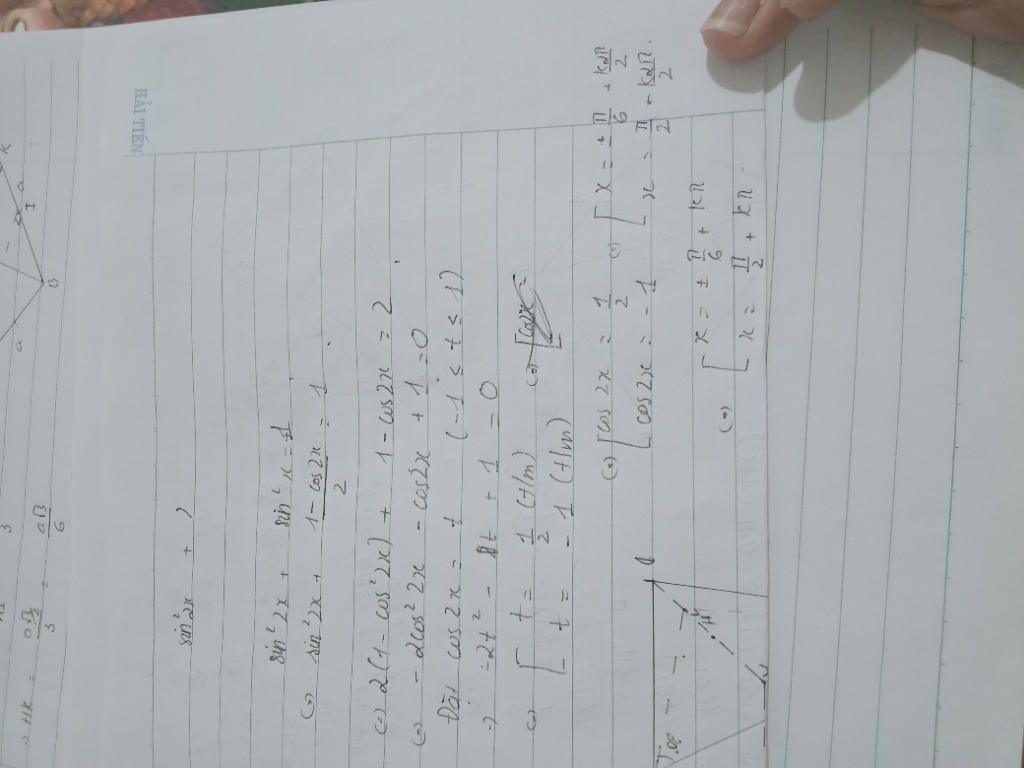 HẢI TIẾN
3
⇒ HK = a√3/3 = a√3/6
a
B
I
a
K
sin²2x + 2
sin²2x + sin²x = 1
(=) sin²2x + 1 - cos2x/2 = 1
(=) 2(1 - cos²2x) + 1 - cos2x = 2
(=) - 2cos²2x - cos2x + 1 = 0
Đặt cos2x = t (-1 ≤ t ≤ 1)
⇒ -2t² - t + 1 = 0
(=) [ t = 1/2 (t/m)
t = - 1 (t/m)
(=) [ cos2x =
(=) [ cos2x = 1/2 (=) [ x = ± π/6 + k2π/2
[ cos2x = - 1 [ x = π/2 + k2π/2.
(=) [ x = ± π/6 + kπ
[ x = π/2 + kπ